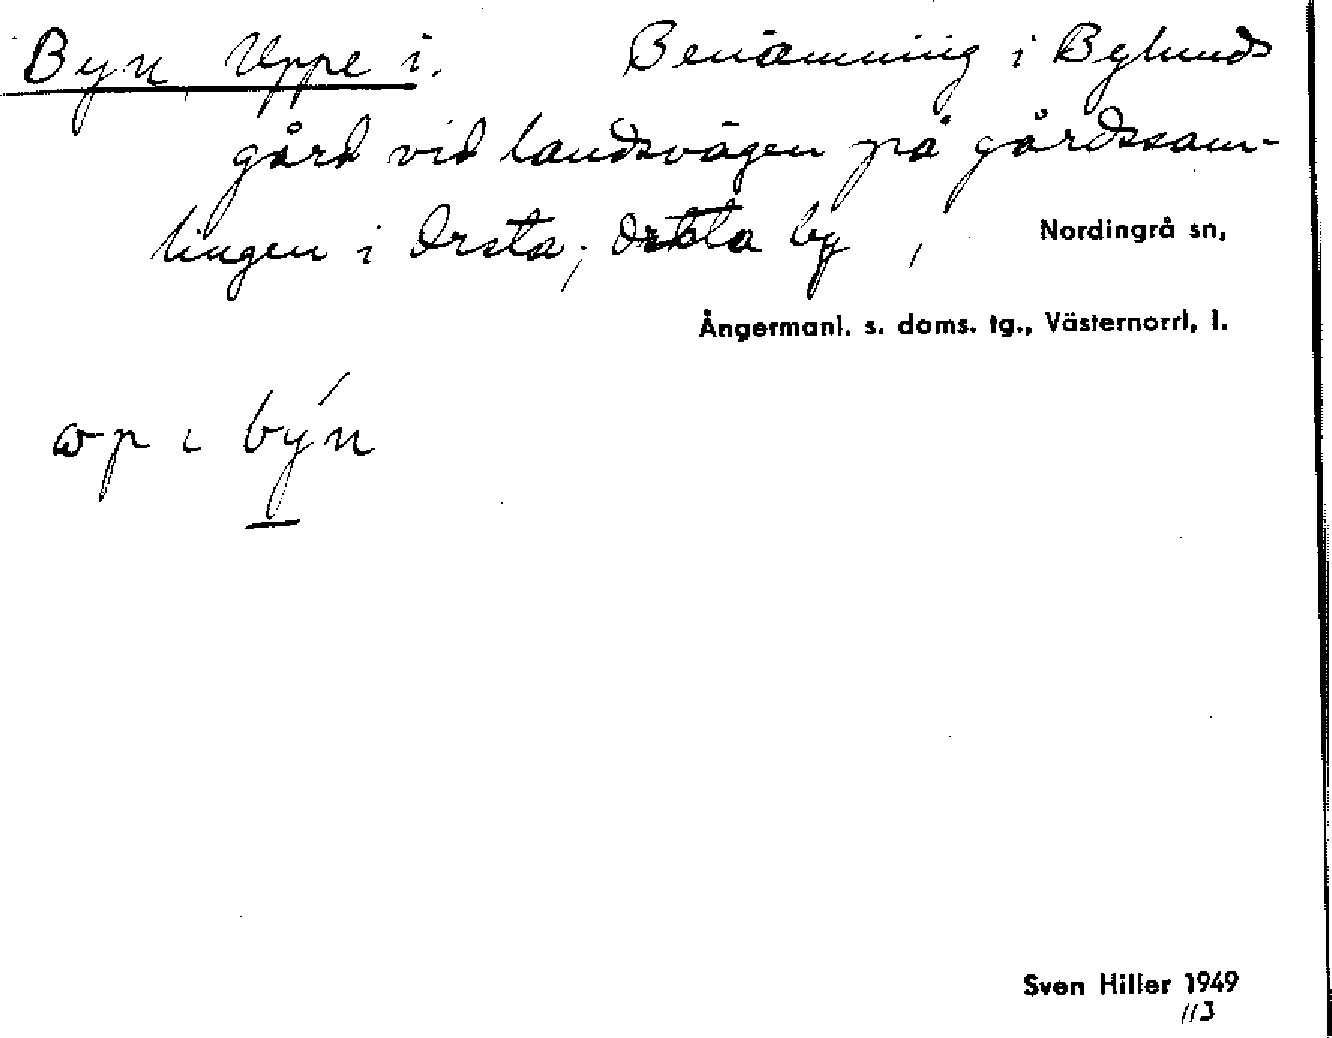 Byn Uppe i. Benämning i Bylunds
gård vid landsvägen på gårdssam-
lingen i Orsta; Orsta by, Nordingrå sn,
Ångermanl. s. doms. tg., Västernorrl, l.
wp ι býn
Sven Hiller 1949
113